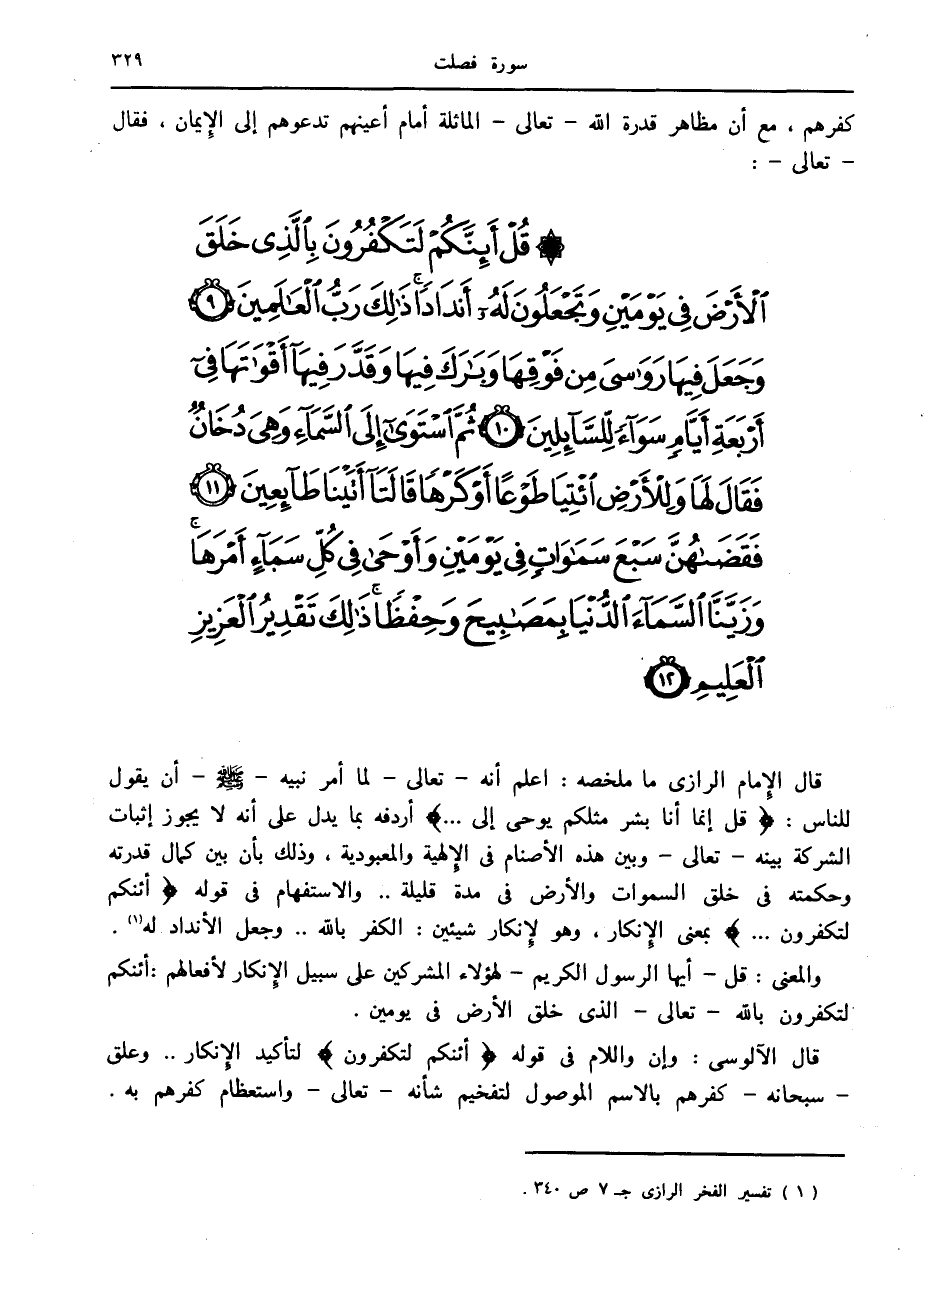 سورة فصلت ٣٢٩
كفرهم ، مع أن مظاهر قدرة الله – تعالى – الماثلة أمام أعينهم تدعوهم إلى الإيمان ، فقال
– تعالى – :
۞ قُلْ أَئِنَّكُمْ لَتَكْفُرُونَ بِٱلَّذِى خَلَقَ
ٱلْأَرْضَ فِى يَوْمَيْنِ وَتَجْعَلُونَ لَهُۥٓ أَندَادًا ۚ ذَٰلِكَ رَبُّ ٱلْعَٰلَمِينَ ٩
وَجَعَلَ فِيهَا رَوَٰسِىَ مِن فَوْقِهَا وَبَٰرَكَ فِيهَا وَقَدَّرَ فِيهَآ أَقْوَٰتَهَا فِىٓ
أَرْبَعَةِ أَيَّامٍ سَوَآءً لِّلسَّآئِلِينَ ١٠ ثُمَّ ٱسْتَوَىٰٓ إِلَى ٱلسَّمَآءِ وَهِىَ دُخَانٌ
فَقَالَ لَهَا وَلِلْأَرْضِ ٱئْتِيَا طَوْعًا أَوْ كَرْهًا قَالَتَآ أَتَيْنَا طَآئِعِينَ ١١
فَقَضَىٰهُنَّ سَبْعَ سَمَٰوَاتٍ فِى يَوْمَيْنِ وَأَوْحَىٰ فِى كُلِّ سَمَآءٍ أَمْرَهَا ۚ
وَزَيَّنَّا ٱلسَّمَآءَ ٱلدُّنْيَا بِمَصَٰبِيحَ وَحِفْظًا ۚ ذَٰلِكَ تَقْدِيرُ ٱلْعَزِيزِ
ٱلْعَلِيمِ ١٢
قال الإمام الرازى ما ملخصه : اعلم أنه – تعالى – لما أمر نبيه – ﷺ – أن يقول
للناس : ﴿ قل إنما أنا بشر مثلكم يوحى إلى ...﴾ أردفه بما يدل على أنه لا يجوز إثبات
الشركة بينه – تعالى – وبين هذه الأصنام فى الإلهية والمعبودية ، وذلك بأن بين كمال قدرته
وحكمته فى خلق السموات والأرض فى مدة قليلة .. والاستفهام فى قوله ﴿ أئنكم
لتكفرون ... ﴾ بمعنى الإنكار ، وهو لإنكار شيئين : الكفر بالله .. وجعل الأنداد له(١) .
والمعنى : قل – أيها الرسول الكريم – لهؤلاء المشركين على سبيل الإنكار لأفعالهم :أئنكم
لتكفرون بالله – تعالى – الذى خلق الأرض فى يومين .
قال الآلوسى : وإن واللام فى قوله ﴿ أئنكم لتكفرون ﴾ لتأكيد الإنكار .. وعلق
– سبحانه – كفرهم بالاسم الموصول لتفخيم شأنه – تعالى – واستعظام كفرهم به .
( ١ ) تفسير الفخر الرازى جـ ٧ ص ٣٤٠ .